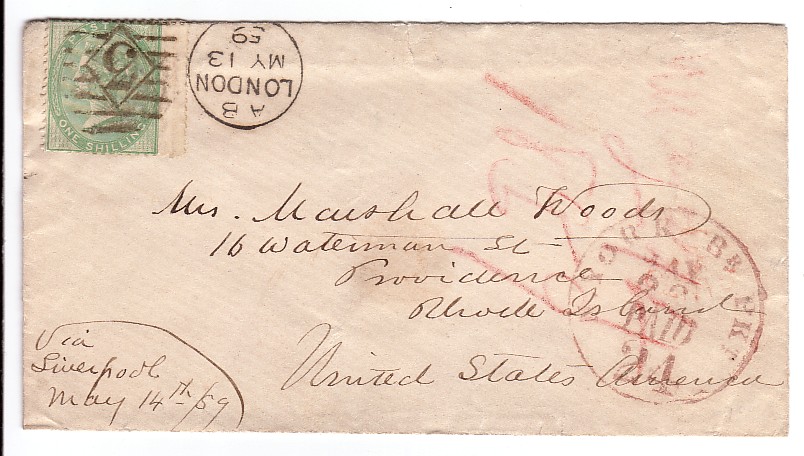 ONE SHILLING
A B
LONDON
MY 13
59
Mrs. Marshall Woods
16 Waterman St
Providence
Rhode Island
United States America
Via
Liverpool
May 14th/59
YORK Br PKT
MAY
PAID
24